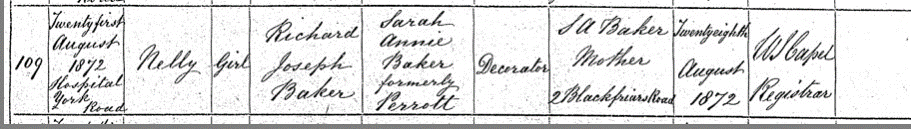 109
Twentyfirst
August
1872
Hospital
York
Road
Nelly
Girl
Richard
Joseph
Baker
Sarah
Annie
Baker
formerly
Perrott
Decorator
S A Baker
Mother
2 Blackfriars Road
Twentyeighth
August
1872
Registrar